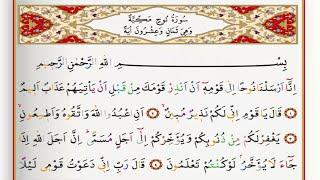 سُورَةُ نُوحٍ مَكِّيَّةٌ
وَهِيَ ثَمَانٍ وَعِشْرُونَ اٰيَةً
بِسْمِ اللّٰهِ الرَّحْمٰنِ الرَّحِيمِ
اِنَّٓا اَرْسَلْنَا نُوحًا اِلٰى قَوْمِهٖٓ اَنْ اَنْذِرْ قَوْمَكَ مِنْ قَبْلِ اَنْ يَأْتِيَهُمْ عَذَابٌ اَلِيمٌ
قَالَ يَا قَوْمِ اِنّٖى لَكُمْ نَذِيرٌ مُبِينٌ اَنِ اعْبُدُوا اللّٰهَ وَاتَّقُوهُ وَاَطِيعُونِ
يَغْفِرْ لَكُمْ مِنْ ذُنُوبِكُمْ وَيُؤَخِّرْكُمْ اِلٰٓى اَجَلٍ مُسَمًّى اِنَّ اَجَلَ اللّٰهِ اِذَا
جَٓاءَ لَا يُؤَخَّرُ لَوْ كُنْتُمْ تَعْلَمُونَ قَالَ رَبِّ اِنّٖى دَعَوْتُ قَوْمٖى لَيْلًا